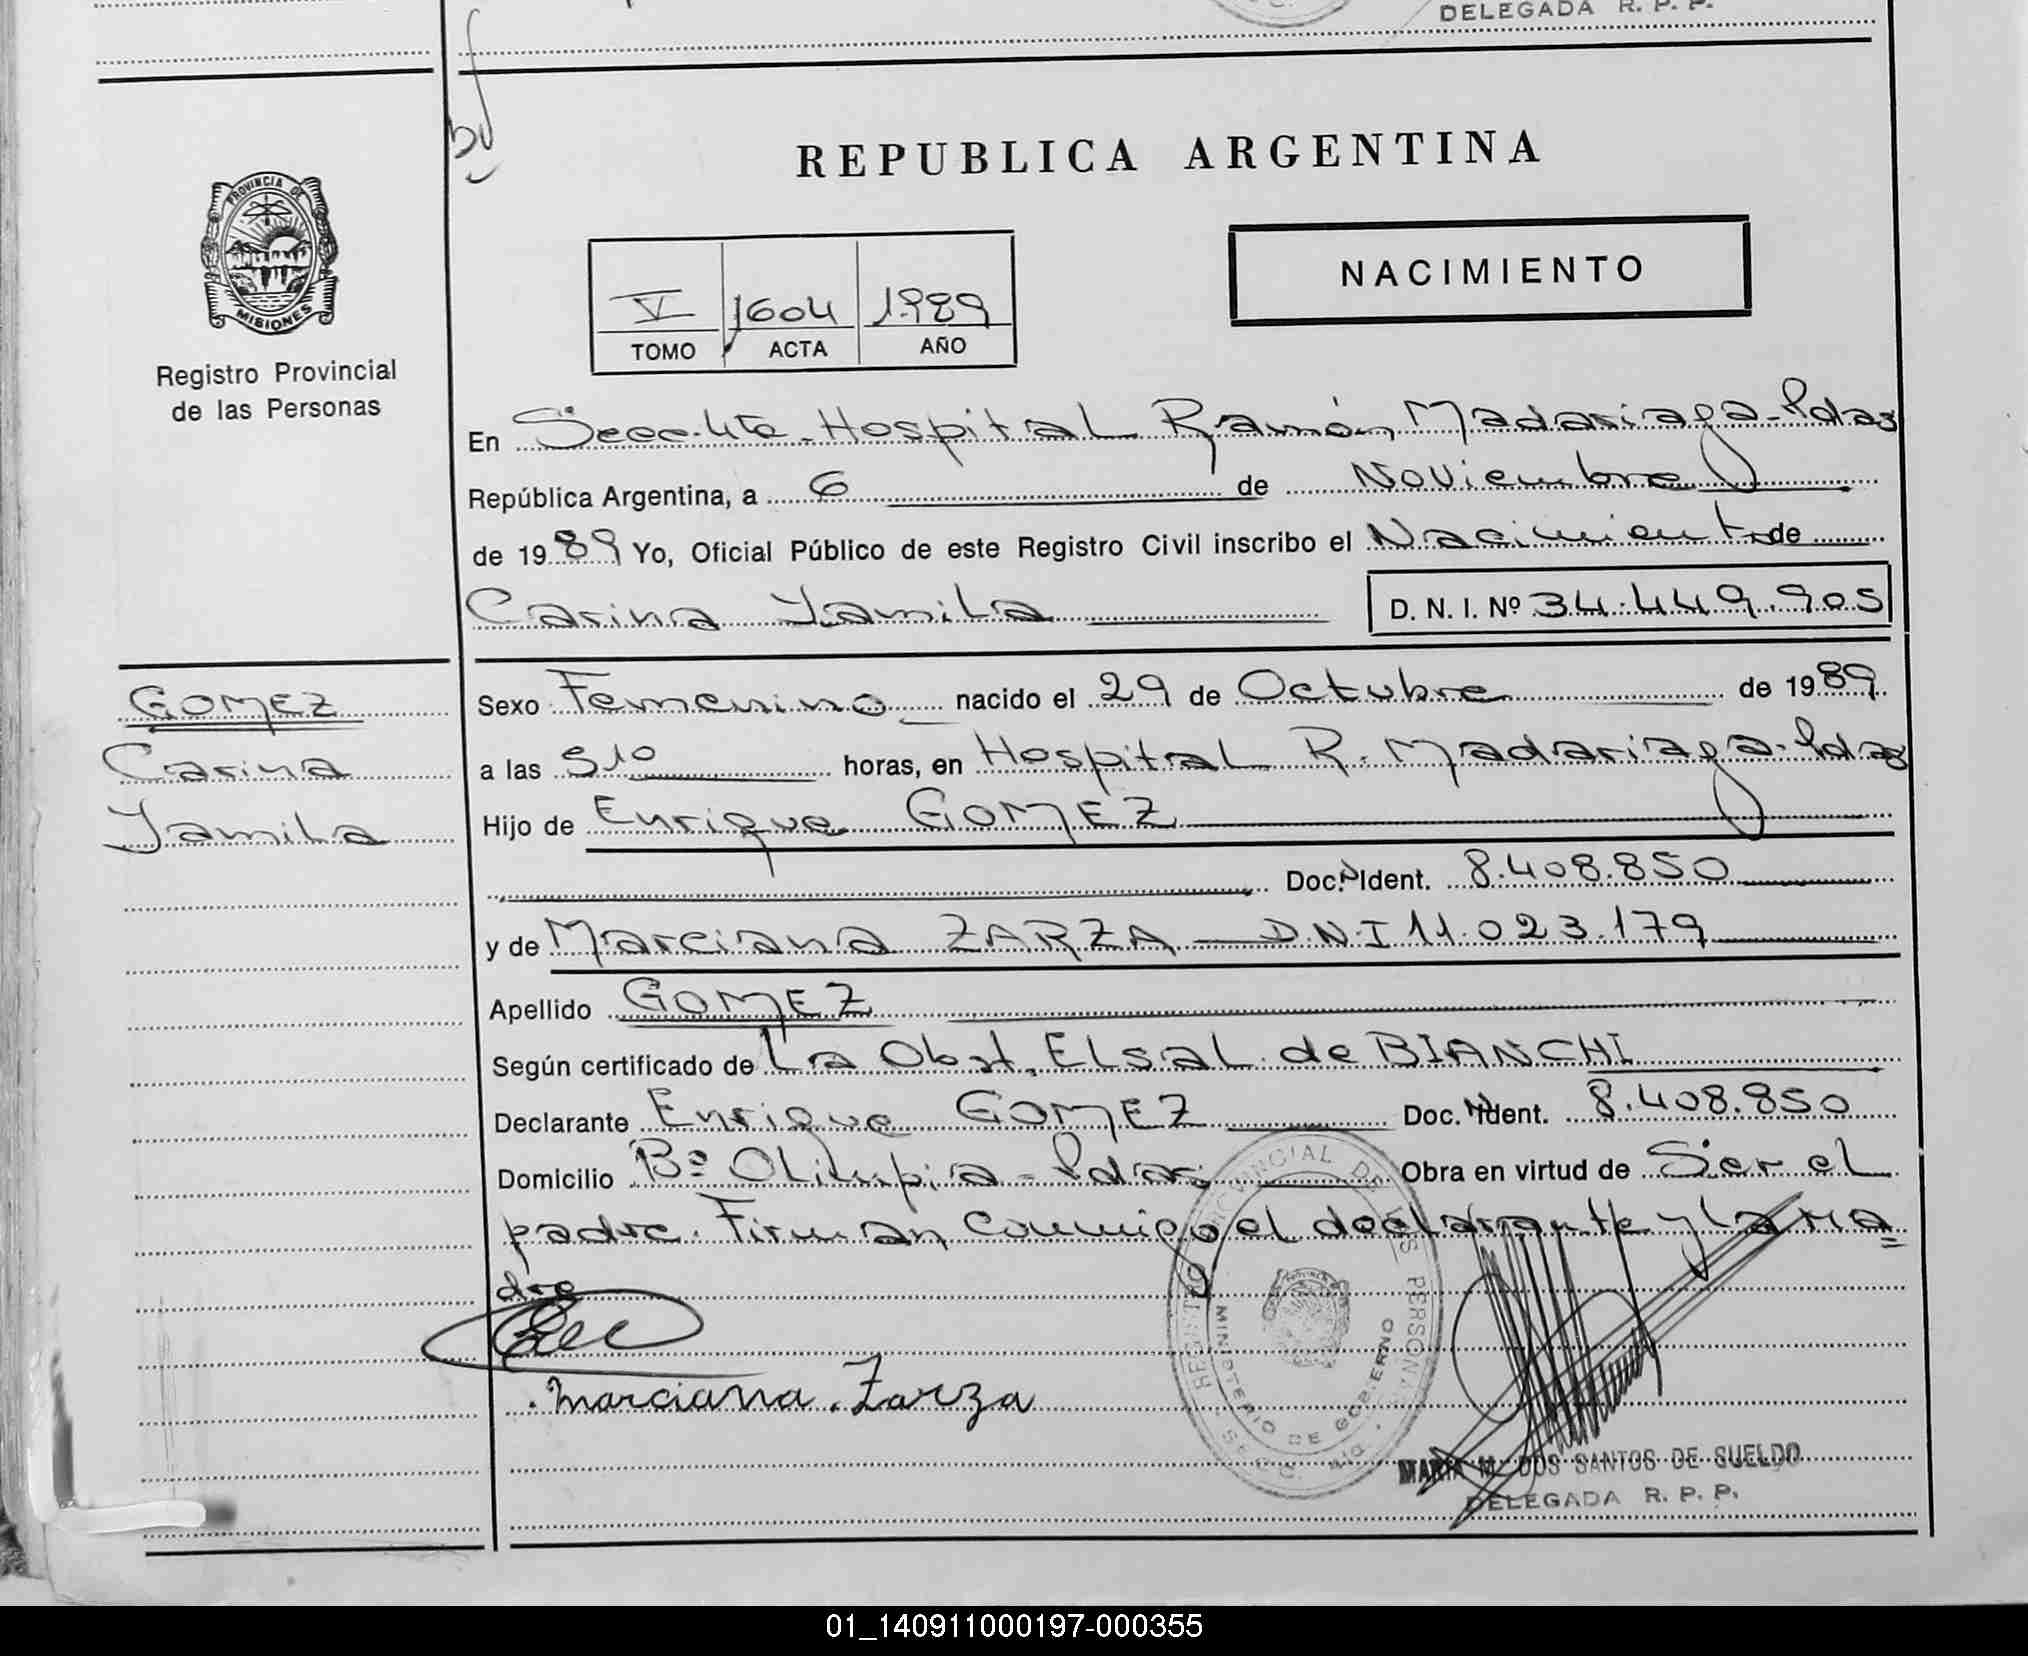 DELEGADA R. P. P.
REPUBLICA ARGENTINA
PROVINCIA DE
MISIONES
Registro Provincial
de las Personas
NACIMIENTO
V 1604 1989
TOMO ACTA AÑO
En Secc. 4ta. Hospital Ramón Madariaga - Pdas
República Argentina, a 6 de Noviembre
de 1989 Yo, Oficial Público de este Registro Civil inscribo el Nacimiento de
Carina Yamila D. N. I. Nº 34.449.905
GOMEZ
Carina
Yamila
Sexo Femenino nacido el 29 de Octubre de 1989
a las 510 horas, en Hospital R. Madariaga - Pdas
Hijo de Enrique GOMEZ
Doc. Ident. 8.408.850
y de Marciana ZARZA - D.N.I 11.023.179
Apellido GOMEZ
Según certificado de La Obst. Elsa L. de BIANCHI
Declarante Enrique GOMEZ Doc. Ident. 8.408.850
Domicilio Bº Olimpia - Pdas Obra en virtud de Ser el
padre. Firman conmigo el declarante y la ma
dre
Marciana Zarza
REGISTRO PROVINCIAL DE LAS PERSONAS
MINISTERIO DE GOBIERNO
MARIA M. DOS SANTOS DE SUELDO
DELEGADA R. P. P.
01_140911000197-000355